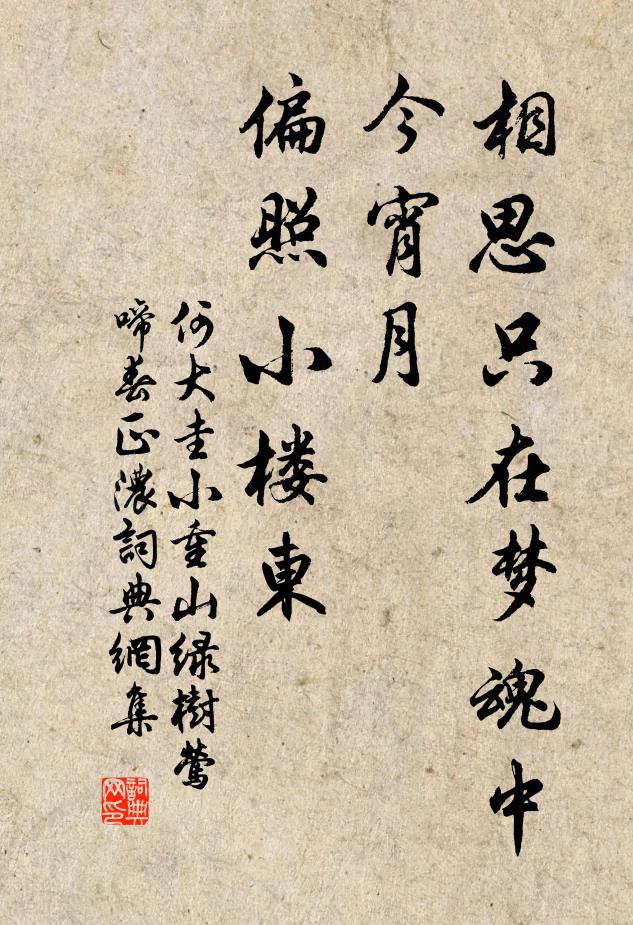 相思只在梦魂中
今宵月
偏照小楼東
何大圭小重山绿樹莺
啼春正濃詞典網集
詞典网印